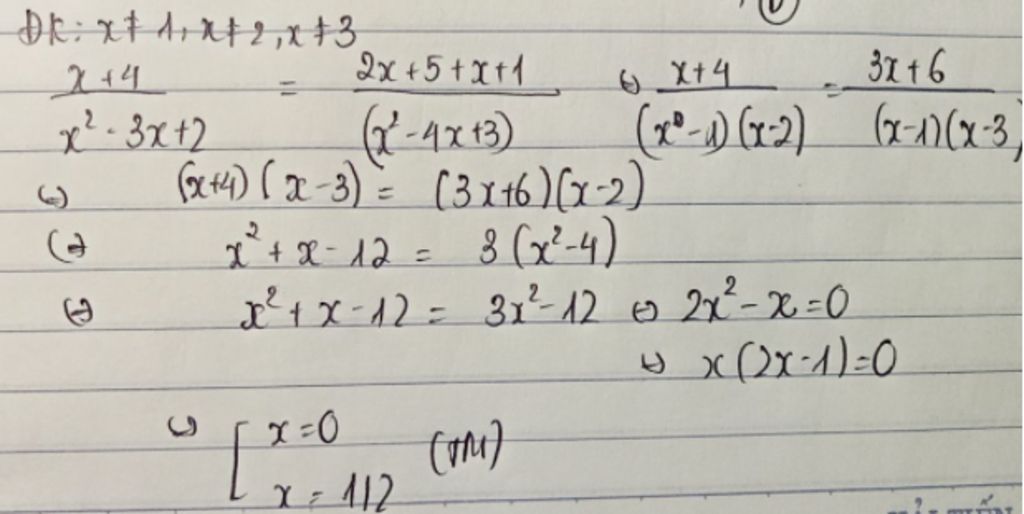 ĐK: x ≠ 1, x ≠ 2, x ≠ 3
(x+4)/(x² - 3x+2) = (2x+5+x+1)/(x² - 4x+3) ⇔ (x+4)/((x-1)(x-2)) = (3x+6)/((x-1)(x-3)
⇔ (x+4)(x-3) = (3x+6)(x-2)
⇔ x² + x - 12 = 3(x²-4)
⇔ x² + x - 12 = 3x² - 12 ⇔ 2x² - x = 0
⇔ x(2x-1)=0
⇔ [ x = 0
x = 1/2 (TM)